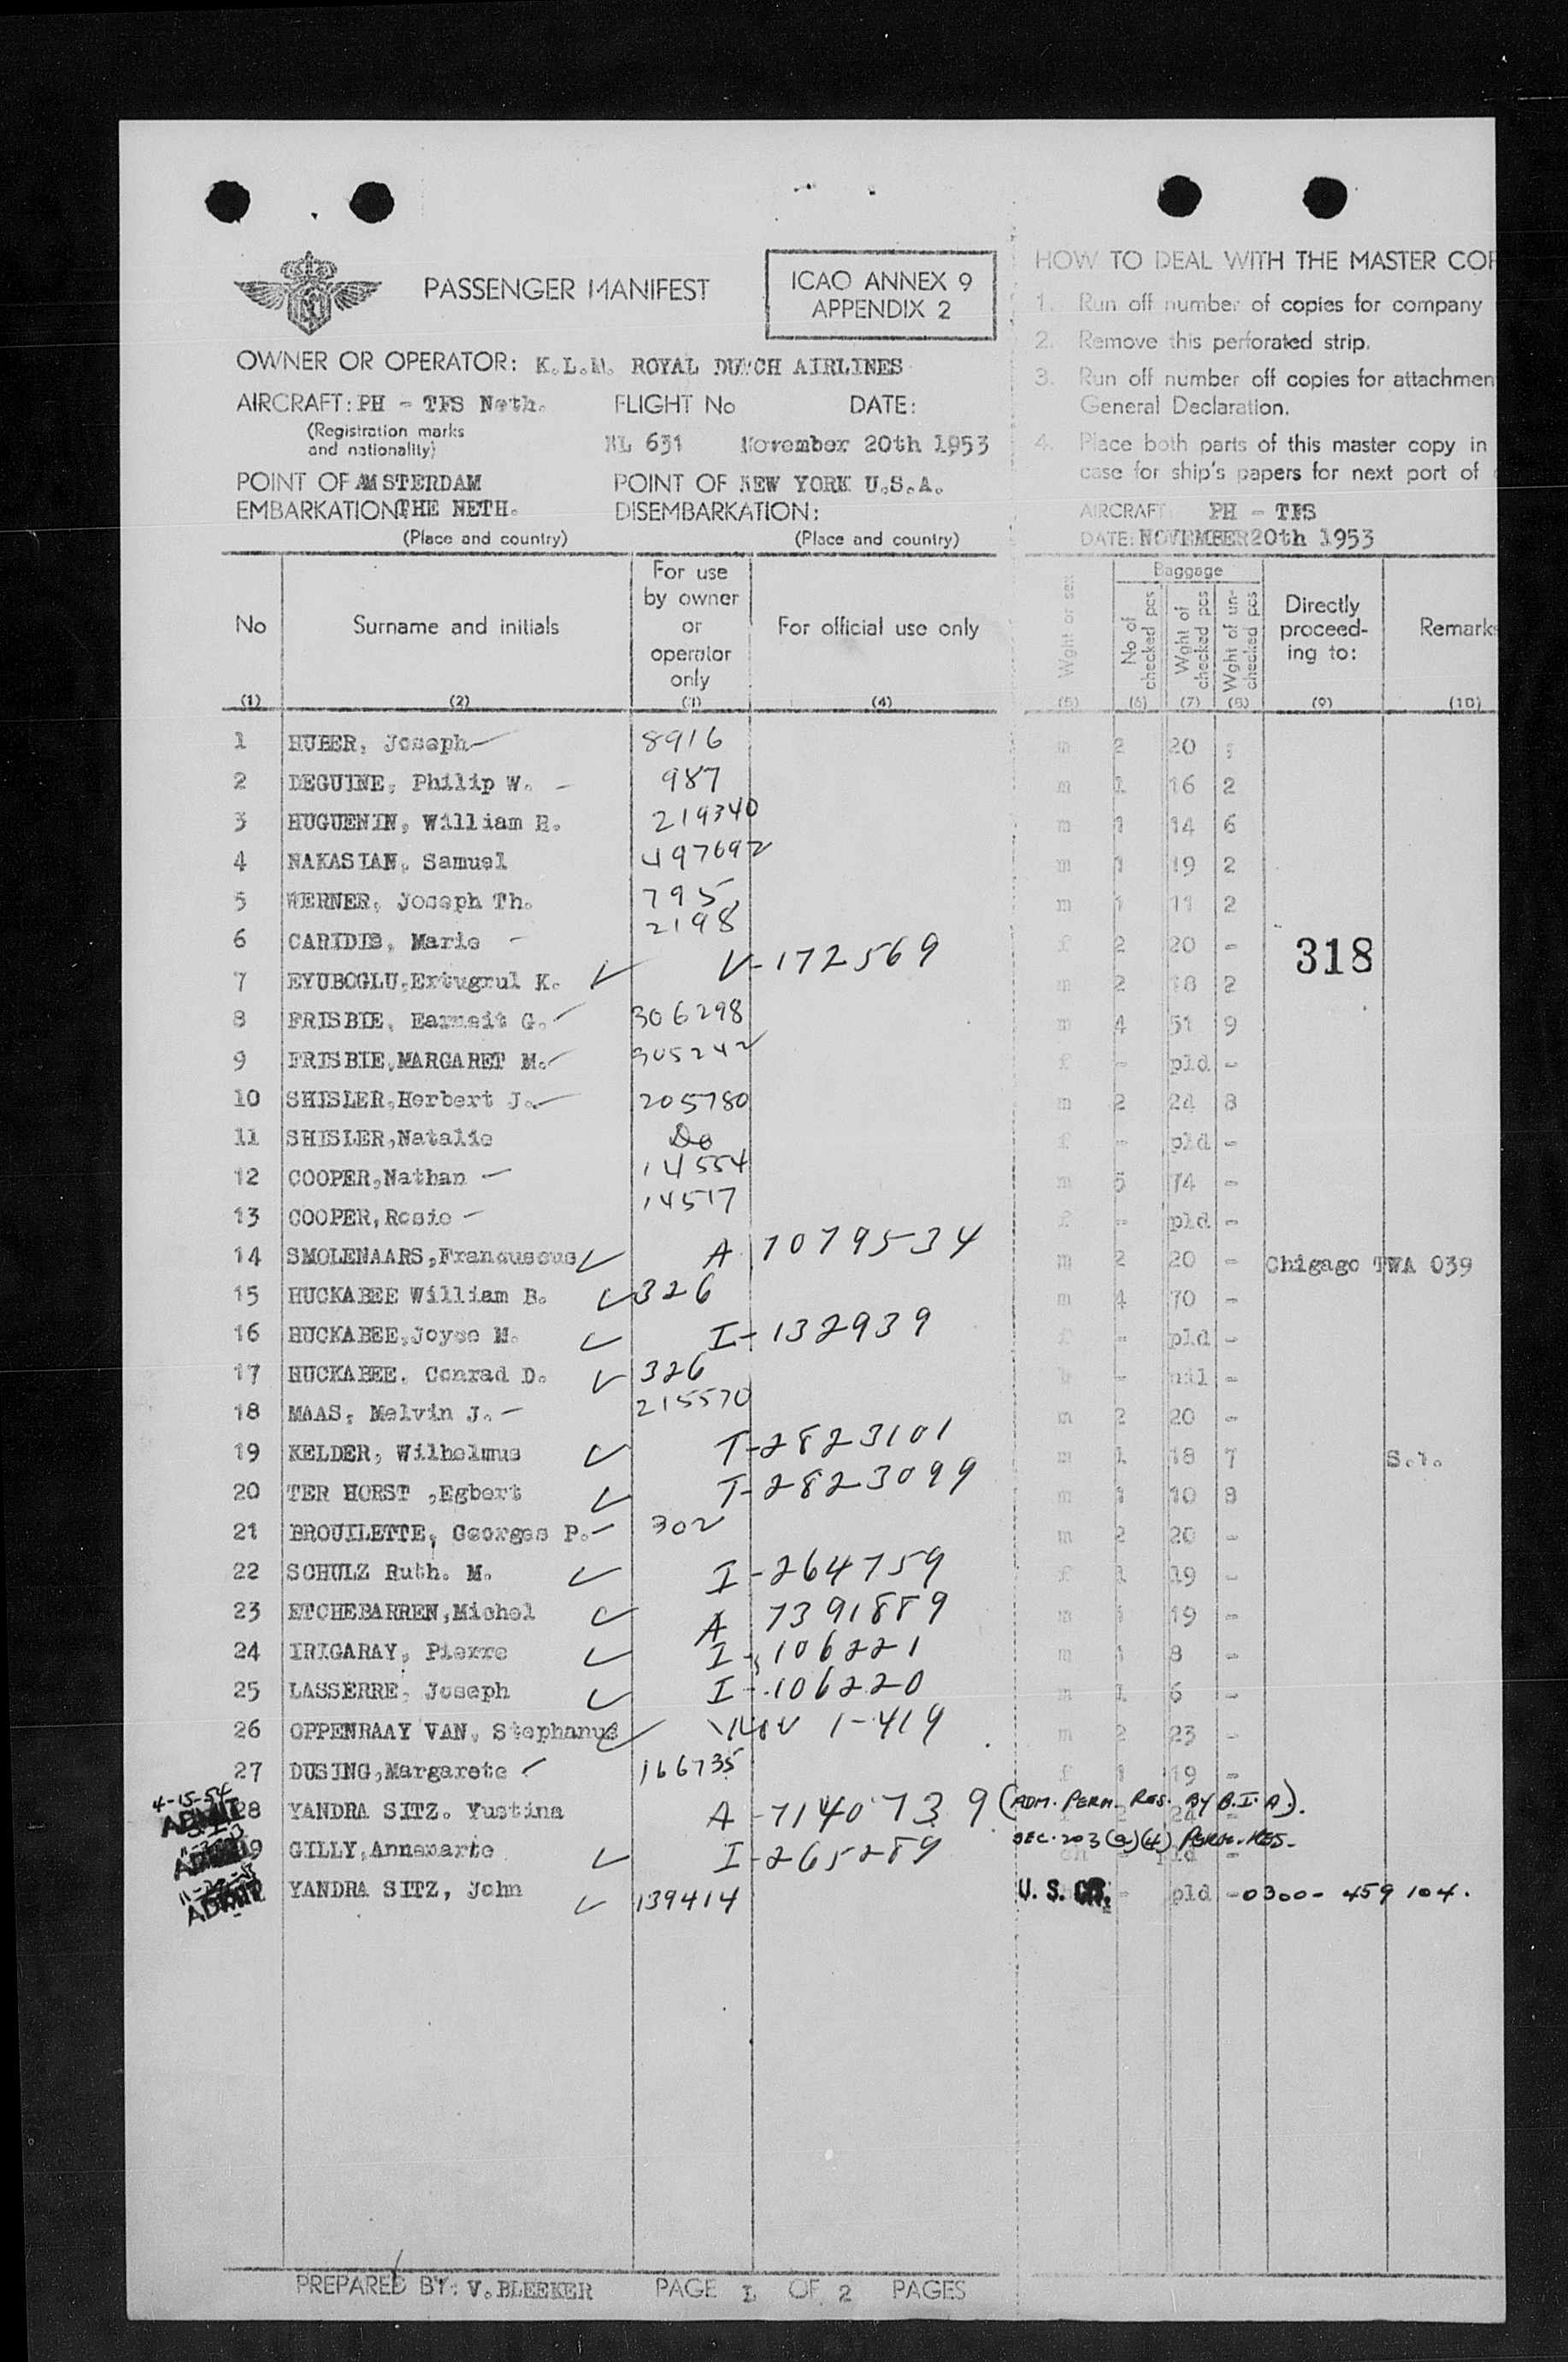 PASSENGER MANIFEST
ICAO ANNEX 9
APPENDIX 2
OWNER OR OPERATOR: K.L.M. ROYAL DUTCH AIRLINES
AIRCRAFT: PH - TFS Neth. FLIGHT No DATE:
(Registration marks
and nationality)
KL 631 November 20th 1953
POINT OF AMSTERDAM POINT OF NEW YORK U.S.A.
EMBARKATION THE NETH. DISEMBARKATION:
(Place and country) (Place and country)
HOW TO DEAL WITH THE MASTER COP
1. Run off number of copies for company
2. Remove this perforated strip.
3. Run off number off copies for attachmen
General Declaration.
4. Place both parts of this master copy in
case for ship's papers for next port of
AIRCRAFT PH - TFS
DATE: NOVEMBER 20th 1953
No Surname and initials For use by owner or operator only For official use only Wght or sex Baggage No of checked pcs Wght of checked pcs Wght of un-checked pcs Directly proceed-ing to: Remarks
(1) (2) (3) (4) (5) (6) (7) (8) (9) (10)
1 HUBER, Joseph 8916 m 2 20 -
2 DEGUINE, Philip W. - 987 m 1 16 2
3 HUGUENIN, William R. 219340 m 1 14 6
4 NAKASIAN, Samuel 497692 m 1 19 2
5 WERNER, Joseph Th. 795 m 1 11 2
6 CARIDIS, Marie - 2198 f 2 20 -
318
7 EYUBOGLU, Ertugrul K. ✓ V-172569 m 2 18 2
8 FRISBIE, Earnest G. 306298 m 4 51 9
9 FRISBIE, MARGARET M. 305242 f - pld -
10 SHISLER, Herbert J. 205780 m 2 24 8
11 SHISLER, Natalie Do f - pld -
12 COOPER, Nathan - 14554 m 5 74 -
13 COOPER, Rosie - 14517 f - pld -
14 SMOLENAARS, Francuscus ✓ A 7079534 m 2 20 - Chigago TWA 039
15 HUCKABEE William B. ✓ 326 m 4 70 -
16 HUCKABEE, Joyce M. ✓ I-132939 f - pld -
17 HUCKABEE, Conrad D. ✓ 326 - nil -
18 MAAS, Melvin J. - 215570 m 2 20 -
19 KELDER, Wilhelmus ✓ T-2823101 m 1 18 7 S.r.
20 TER HORST ,Egbert ✓ T-2823099 m 1 10 8
21 BROUILETTE, Georges P. - 302 m 2 20 -
22 SCHULZ Ruth. M. ✓ I-264759 f 1 19 -
23 ETCHEBARREN, Michel ✓ A 7391889 m 1 19 -
24 IRIGARAY, Pierre ✓ I-106221 m 1 8 -
25 LASSERRE, Joseph ✓ I-106220 m 1 6 -
26 OPPENRAAY VAN, Stephanus 1-419 m 2 23 -
27 DUSING, Margarete 166735 f 1 19 -
4-15-54
ADMIT 28 YANDRA SITZ. Yustina A-7140739 (ADM. PERM. RES. BY B.I.A.). 24 -
ADMIT 29 GILLY, Annemarie ✓ I-265289 SEC. 203(a)(4) PERM. RES. ch - pld -
ADMIT YANDRA SITZ, John ✓ 139414 U. S. - pld - 0300-459104.
PREPARED BY: V. BLEEKER PAGE 1 OF 2 PAGES